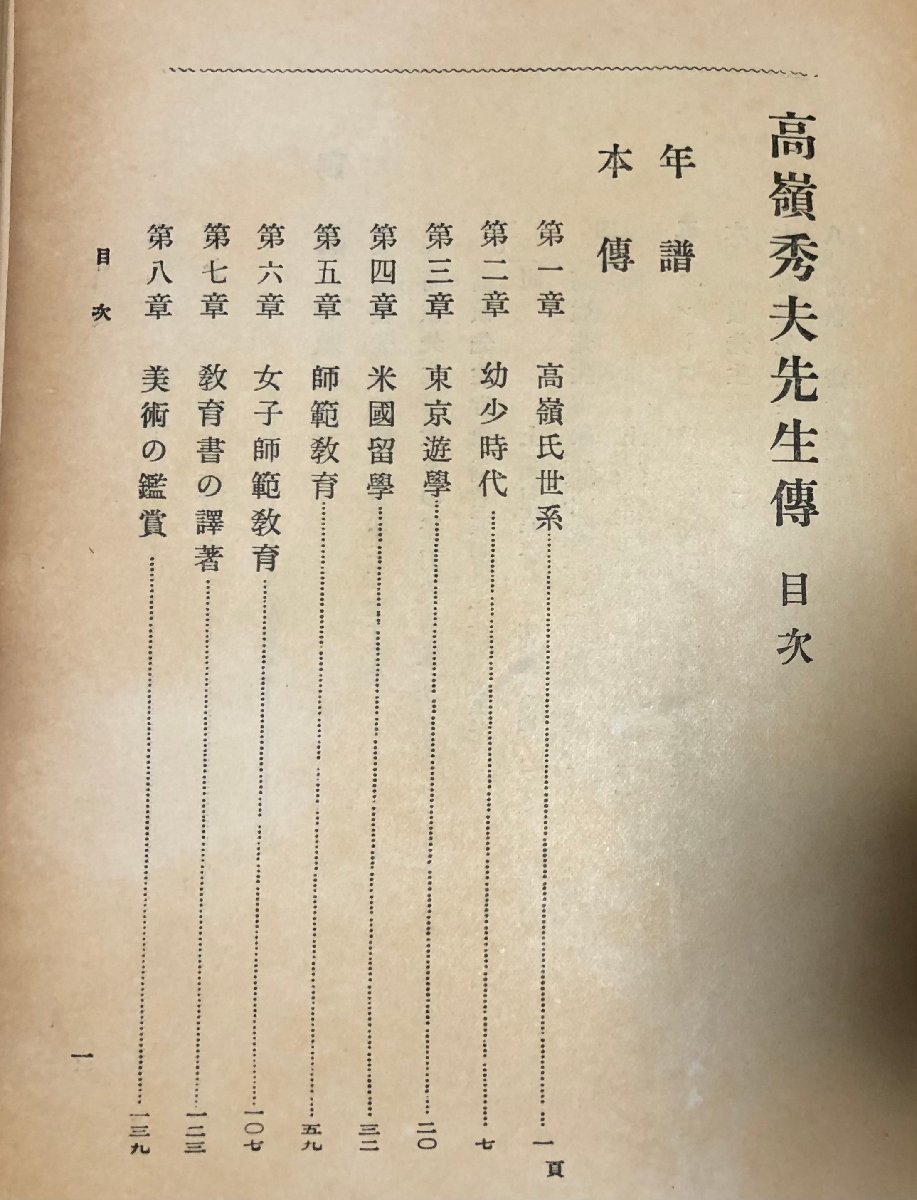 高嶺秀夫先生傳 目次
年譜
本傳
第一章 高嶺氏世系……一頁
第二章 幼少時代……七
第三章 東京遊學……二〇
第四章 米國留學……三二
第五章 師範敎育……五九
第六章 女子師範敎育……一〇七
第七章 敎育書の譯著……一二三
第八章 美術の鑑賞……一三九
目次
一